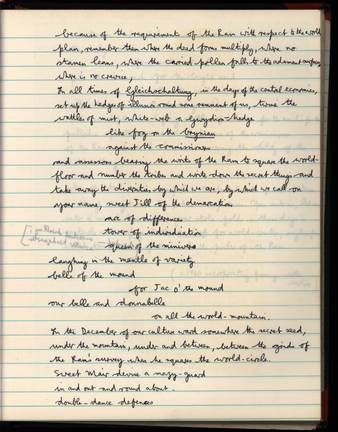 because of the requirements of the Ram with respect to the world
plan, remember them where the dead forms multiply, where no
stamen leans, where the carried pollen falls to the adamant surfaces
where is no crevice,
In all times of Gleichschaltung, in the days of the central economies,
set up the hedges of illusion round some remnant of us, twine the
wattles of mist, white-web a Gwydion-hedge
like fog on the bryniau
against the commissioners
and assessors bearing the writs of the Ram to square the world-
floor and number the tribes and write down the secret things and
take away the diversities by which we are, by which we call on
your name, sweet Jill of the demarcation
arc of differences
tower of individuation
queen of the minivers
laughing in the mantle of variety
belle of the mound
for Jac o' the mound
our belle and donnabelle
on all the world-mountain.
In the December of our culture ward somewhere the secret seed,
under the mountain, under and between, between the grids of
the Ram's survey when he squares the world-circle.
Sweet Mair devise a mazy-guard
in and out and round about
double-dance defences